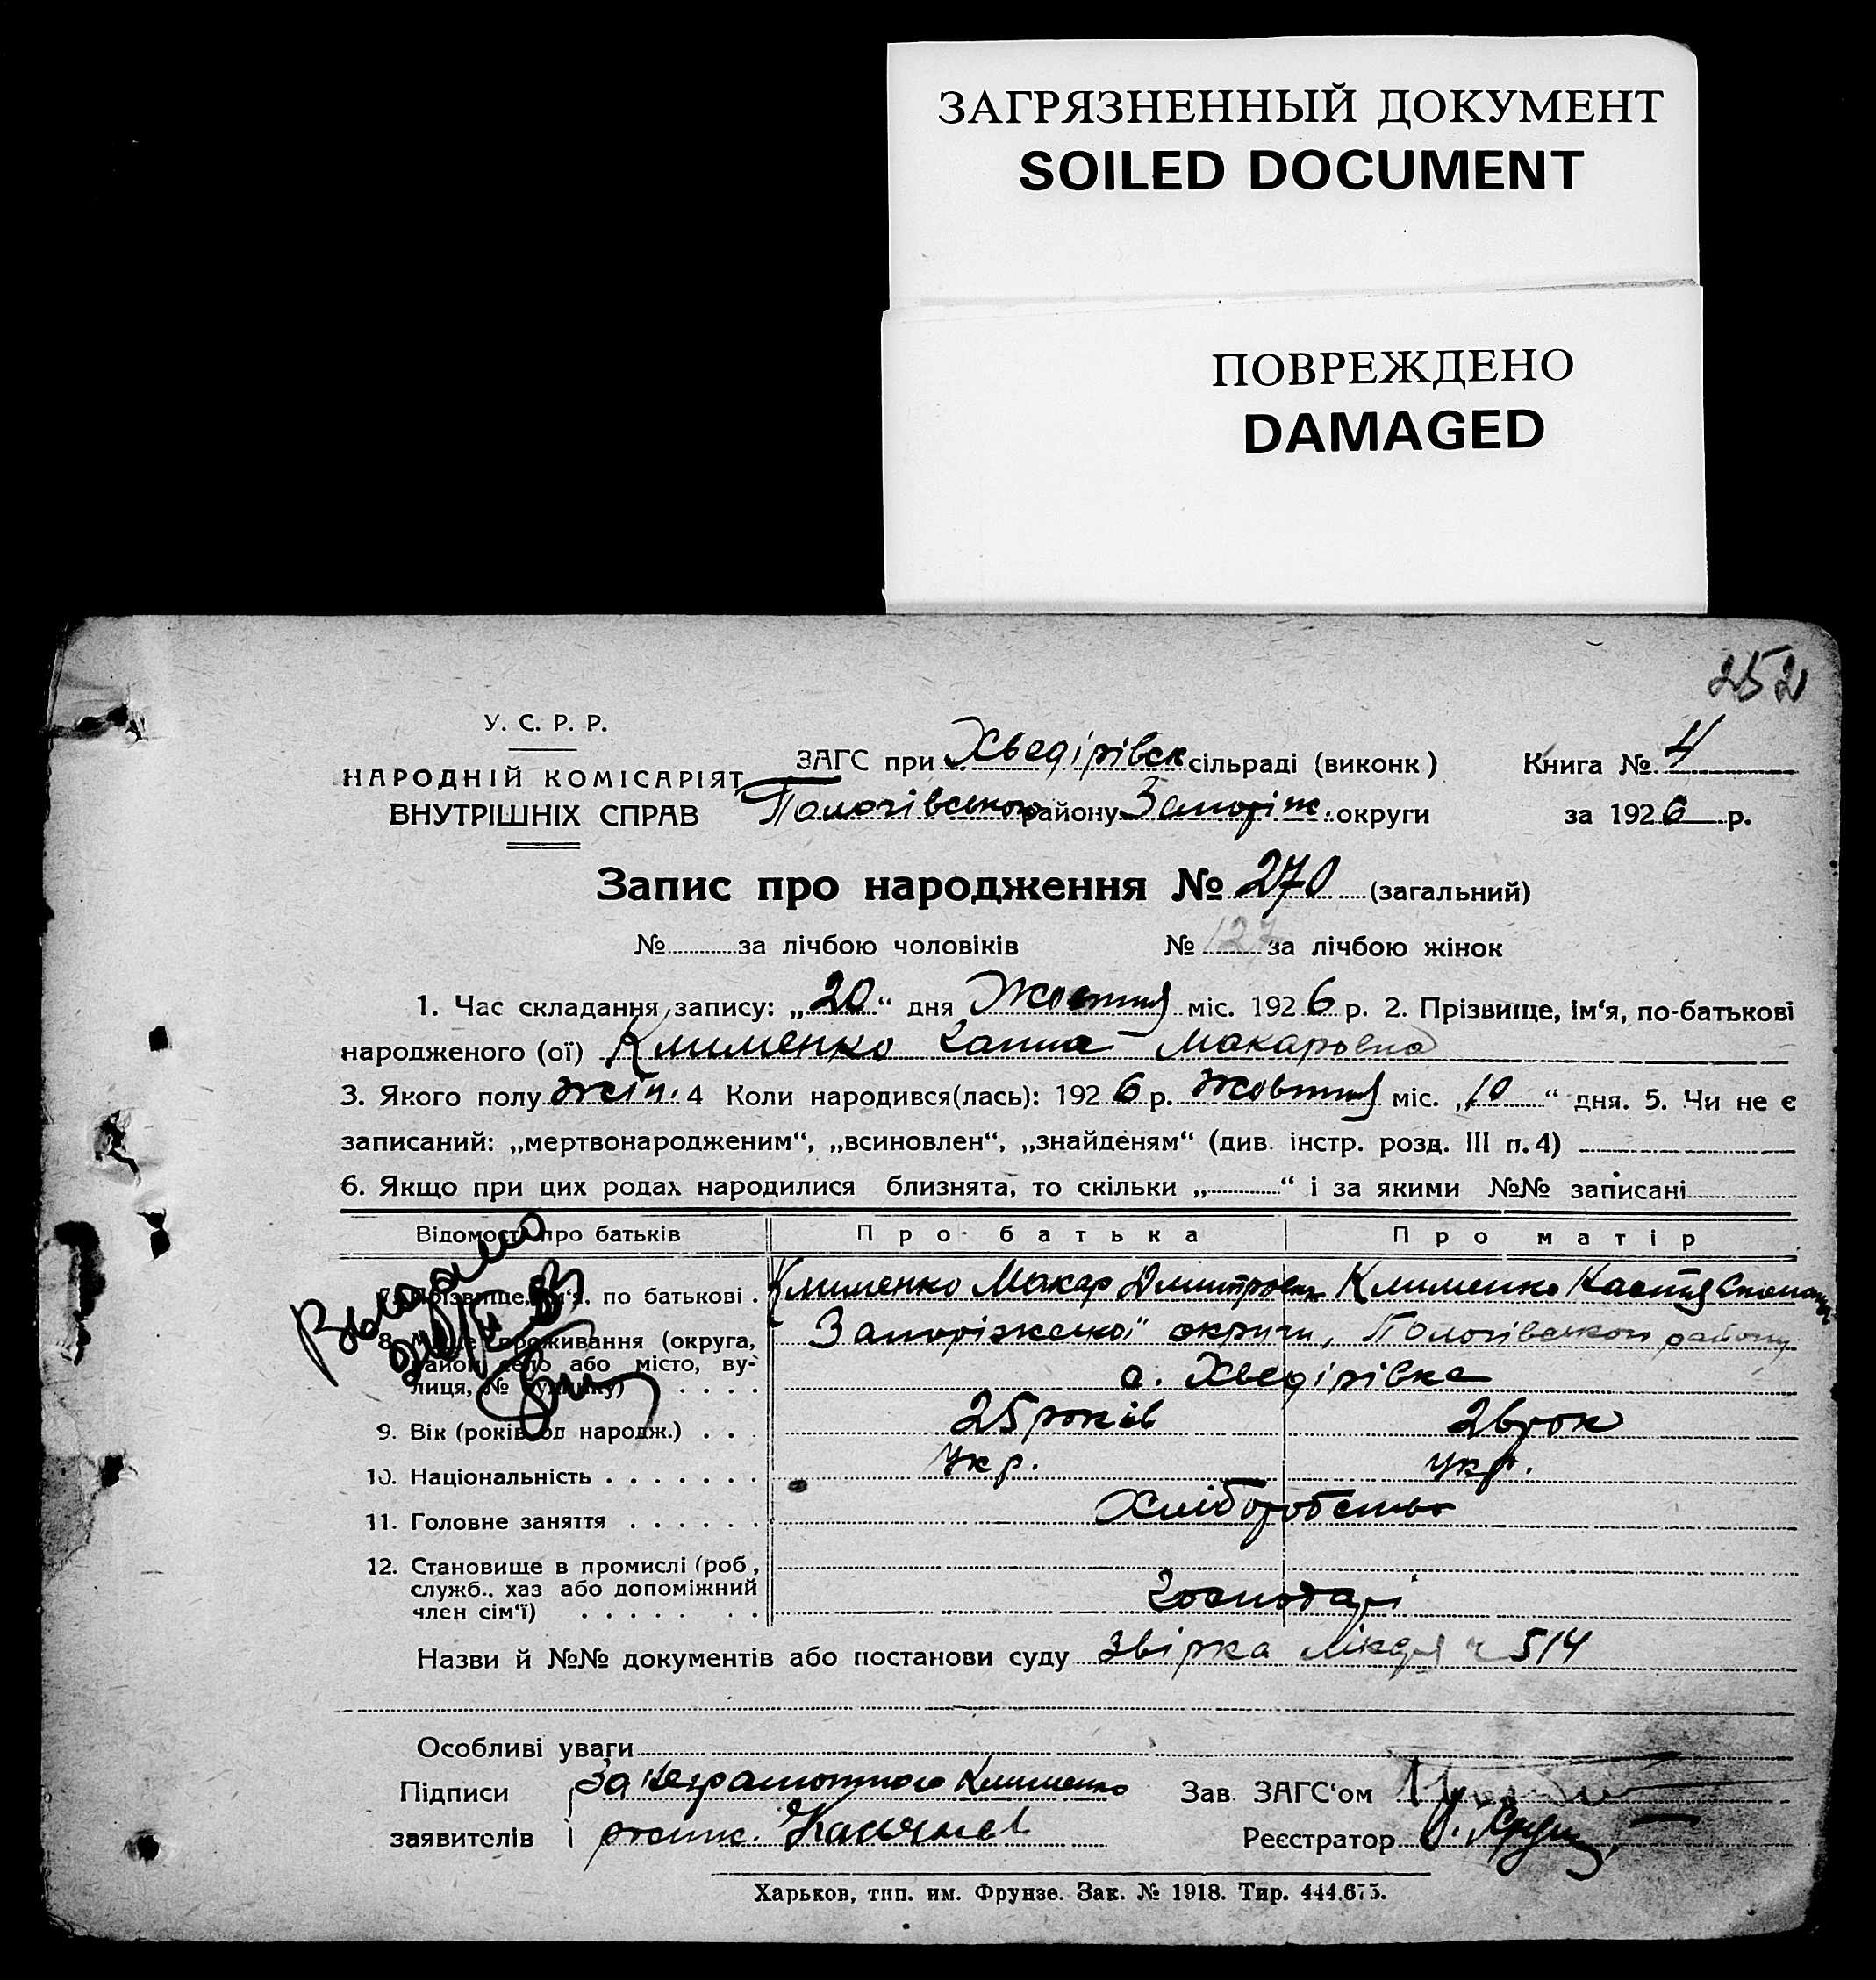 ЗАГРЯЗНЕННЫЙ ДОКУМЕНТ
SOILED DOCUMENT
ПОВРЕЖДЕНО
DAMAGED
252
У. С. Р. Р.
НАРОДНІЙ КОМІСАРІЯТ
ВНУТРІШНІХ СПРАВ
ЗАГС при Хведірівск сільраді (виконк)
Пологівського району Запоріж. округи
Книга № 4
за 1926 р.
Запис про народження № 270 (загальний)
№ за лічбою чоловіків № 127 за лічбою жінок
1. Час складання запису: „20“ дня Жовтня міс. 1926 р. 2. Прізвище, ім‘я, по-батькові
народженого (ої) Клименко Ганна Макаровна
3. Якого полу жін. 4 Коли народився(лась): 1926 р. Жовтня міс. „10“ дня. 5. Чи не є
записаний: „мертвонародженим“, „всиновлен“, „знайденям“ (див. інстр. розд. III п. 4)
6. Якщо при цих родах народилися близнята, то скільки „ “ і за якими №№ записані
Відомости про батьків Про батька Про матір
7. Прізвище, ім‘я, по батькові . Клименко Макар Дмитрович Клименко Настя
8. Місце проживання (округа, Запоріжської округи, Пологівського району
район, село або місто, ву-
лиця, № будинку) . . . . с. Хведірівка
9. Вік (років од народж.) . . . 25 років 26 рок
10. Національність . . . . . . . Укр. Укр.
11. Головне заняття . . . . . . Хліборобство
12. Становище в промислі (роб,
служб.. хаз або допоміжний
член сім‘ї) . . . . . . . . Господарі
Назви й №№ документів або постанови суду Звірка 514
Особливі уваги
Підписи За неграмотного Клименко Зав. ЗАГС‘ом
заявителів Реєстратор
Харьков, тип. им. Фрунзе. Зак. № 1918. Тир. 444.675.